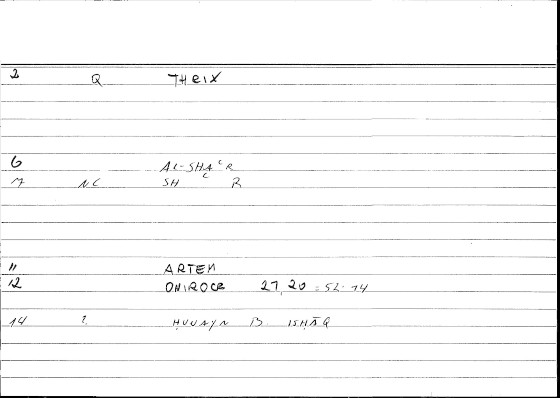 2 Q THRIX
6 AL-SHAʿR
7 NC SH ʿ R
11 ARTEM
12 ONIROCR 27,20 = 52.14
14 ? ḤUNAYN B. ISḤĀQ